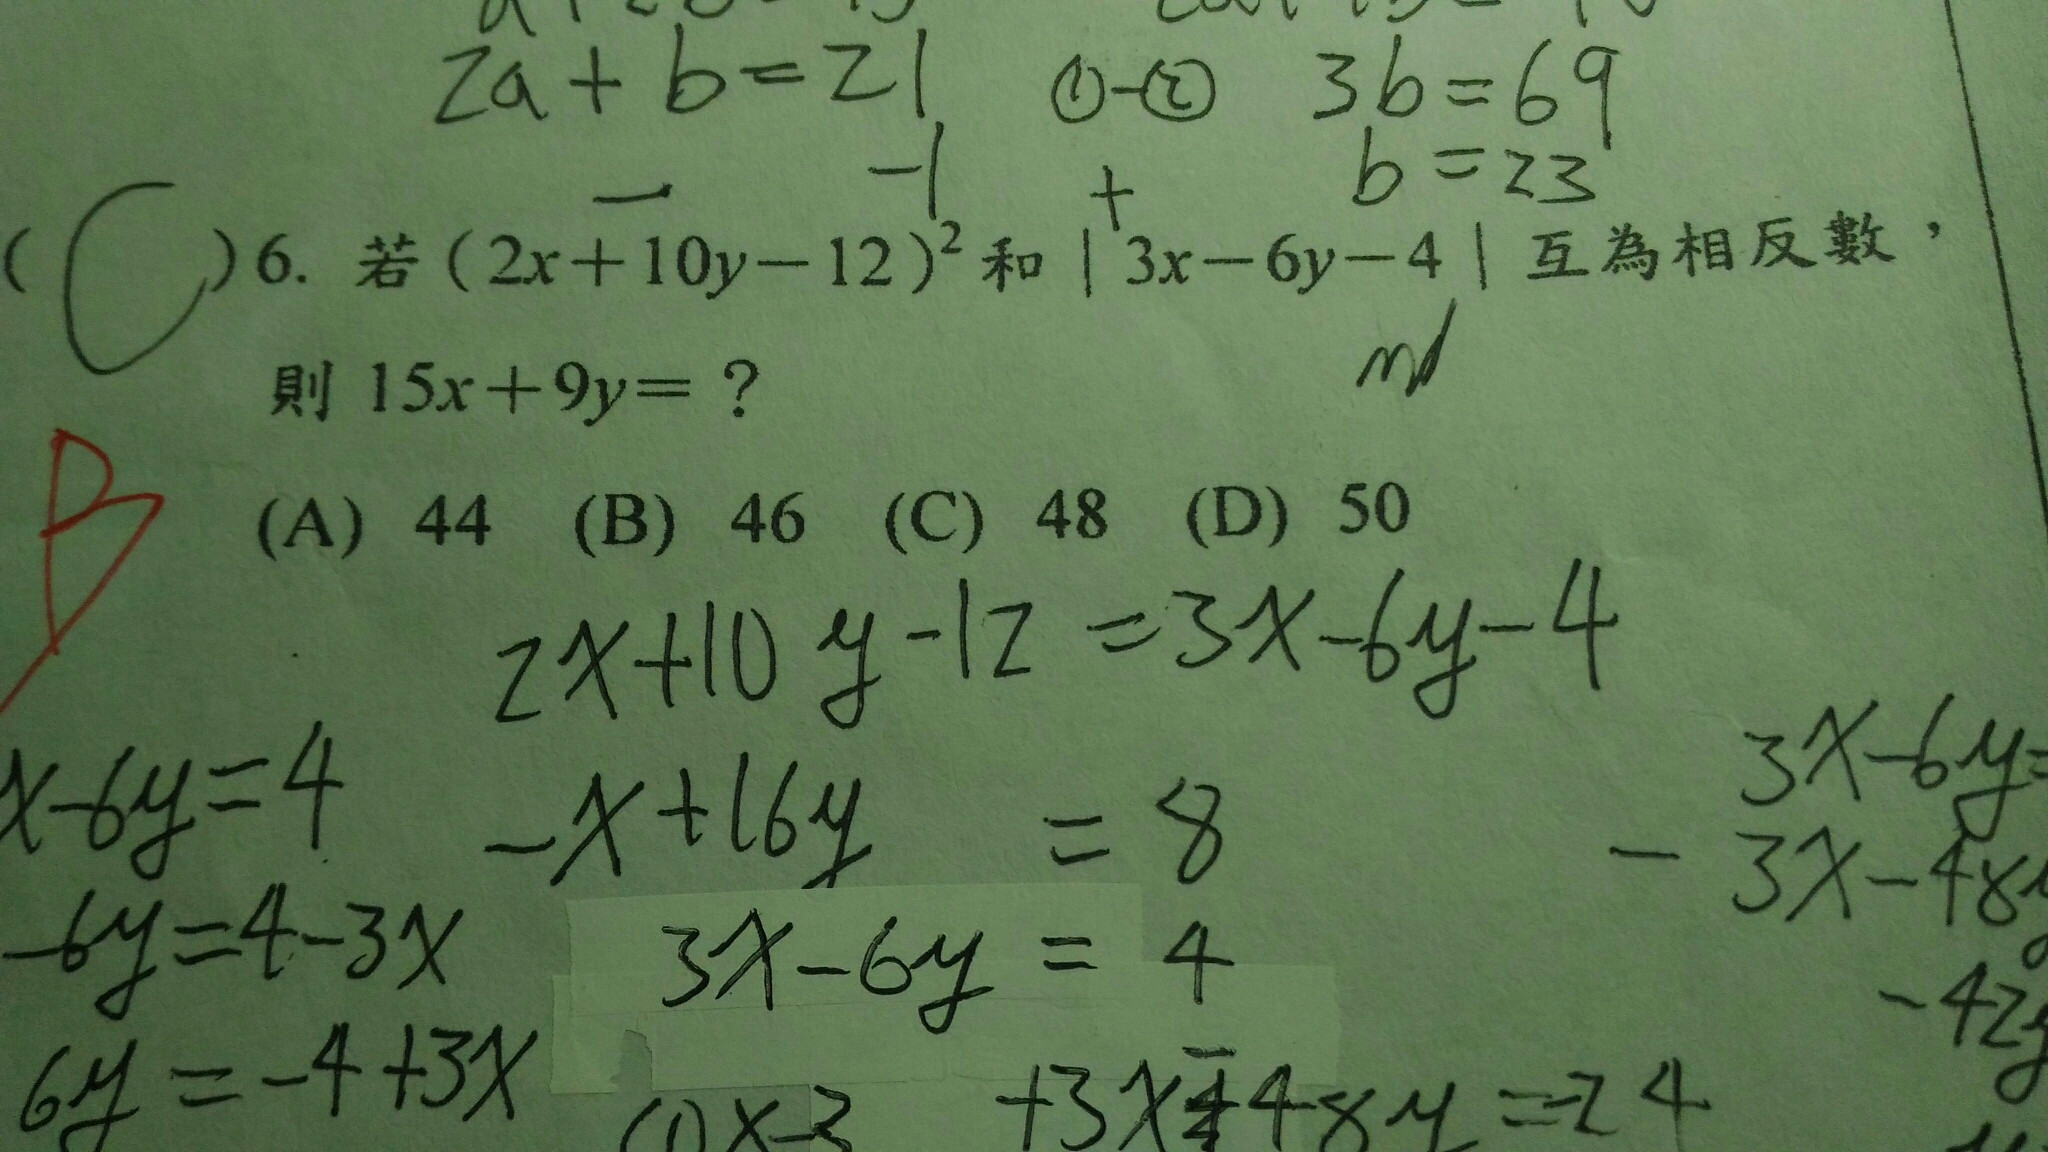 2a+b=21 ①-② 3b=69
-1 + b=23
(C)6. 若(2x+10y-12)²和|3x-6y-4|互為相反數,
則15x+9y=?
B
(A) 44 (B) 46 (C) 48 (D) 50
2x+10y-12=3x-6y-4
x-6y=4 -x+16y=8 3x-6y=
-3x-48y
-6y=4-3x 3x-6y=4
-42y
6y=-4+3x (1)x-3 +3x-48y=-24